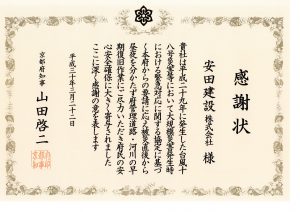 感謝状
安田建設株式会社 様
貴社は平成二十九年に発生した台風十
八号災害等において大規模災害発生時
における緊急対応に関する協定に基づ
く本府からの要請に応え被災直後から
昼夜を分かたず府管理道路・河川の早
期復旧作業にご尽力いただき府民の安
心安全確保に大きく寄与されました
ここに深く感謝の意を表します
平成三十年三月二十二日
京都府知事 山田啓二